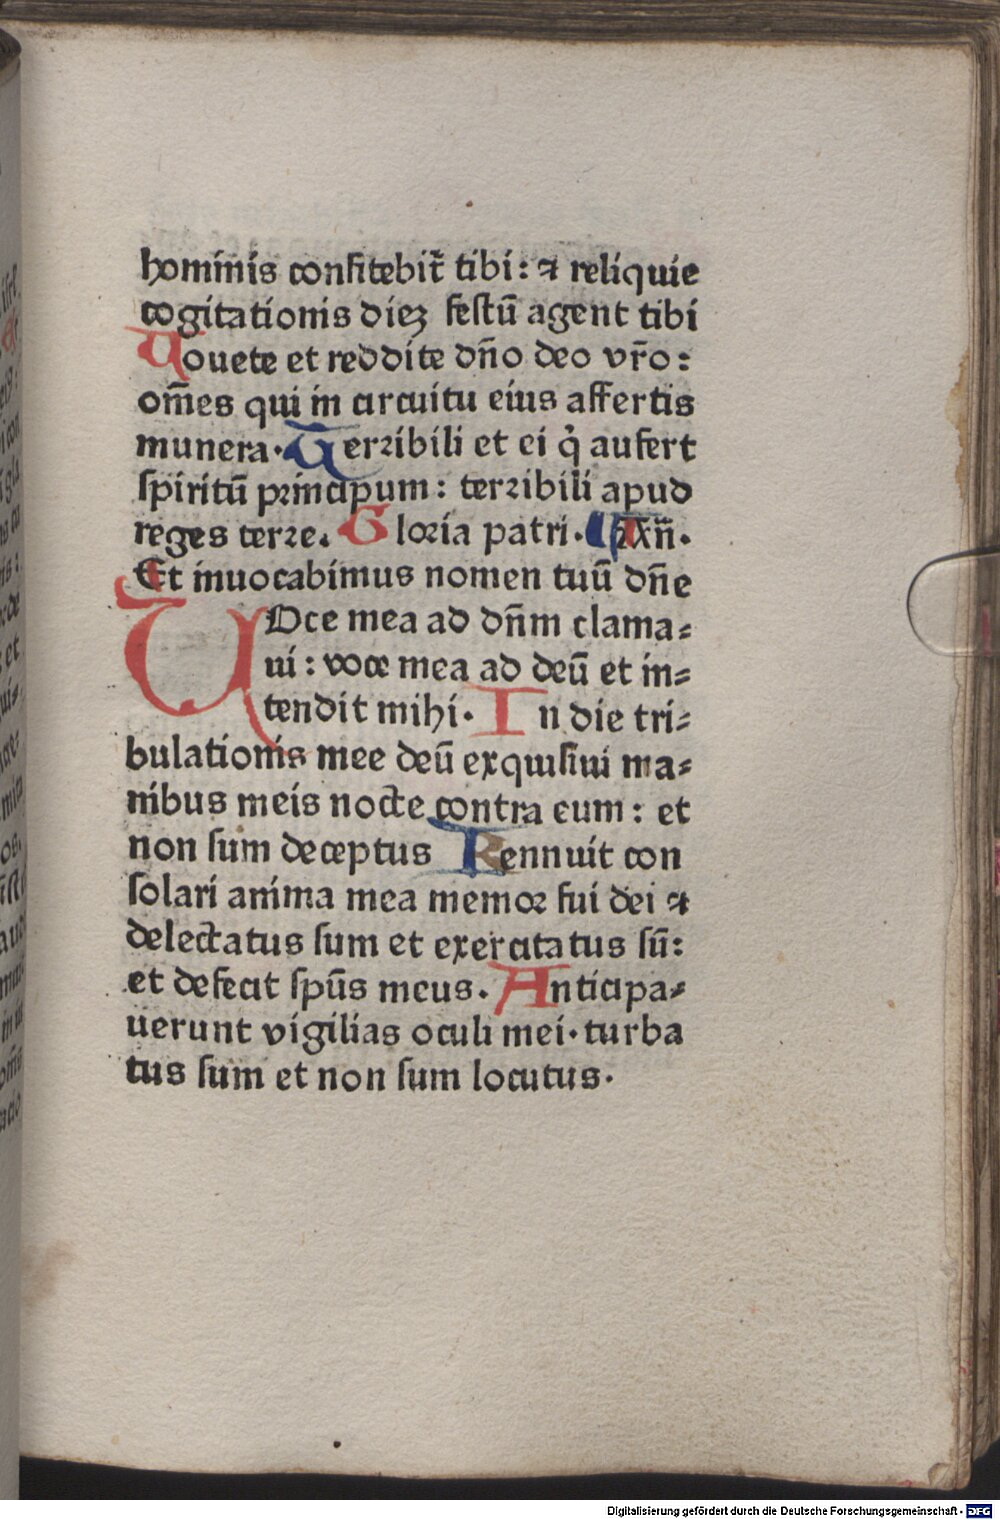 hominis confitebit̃ tibi: ⁊ reliquie
cogitationis dieꝫ festũ agent tibi
Uouete et reddite dño deo vr̃o:
om̃es qui in circuitu eius affertis
munera. Terribili et ei q̇ aufert
spiritũ principum: terribili apud
reges terre. Gloria patri. Añ.
Et inuocabimus nomen tuũ dñe
UOce mea ad dñm clama⸗
ui: voce mea ad deũ et in⸗
tendit mihi. In die tri⸗
bulationis mee deũ exquisiui ma⸗
nibus meis nocte contra eum: et
non sum deceptus Rennuit con
solari anima mea memor fui dei ⁊
delectatus sum et exercitatus sũ:
et defecit spũs meus. Anticipa⸗
uerunt vigilias oculi mei. turba
tus sum et non sum locutus.
Digitalisierung gefördert durch die Deutsche Forschungsgemeinschaft - DFG